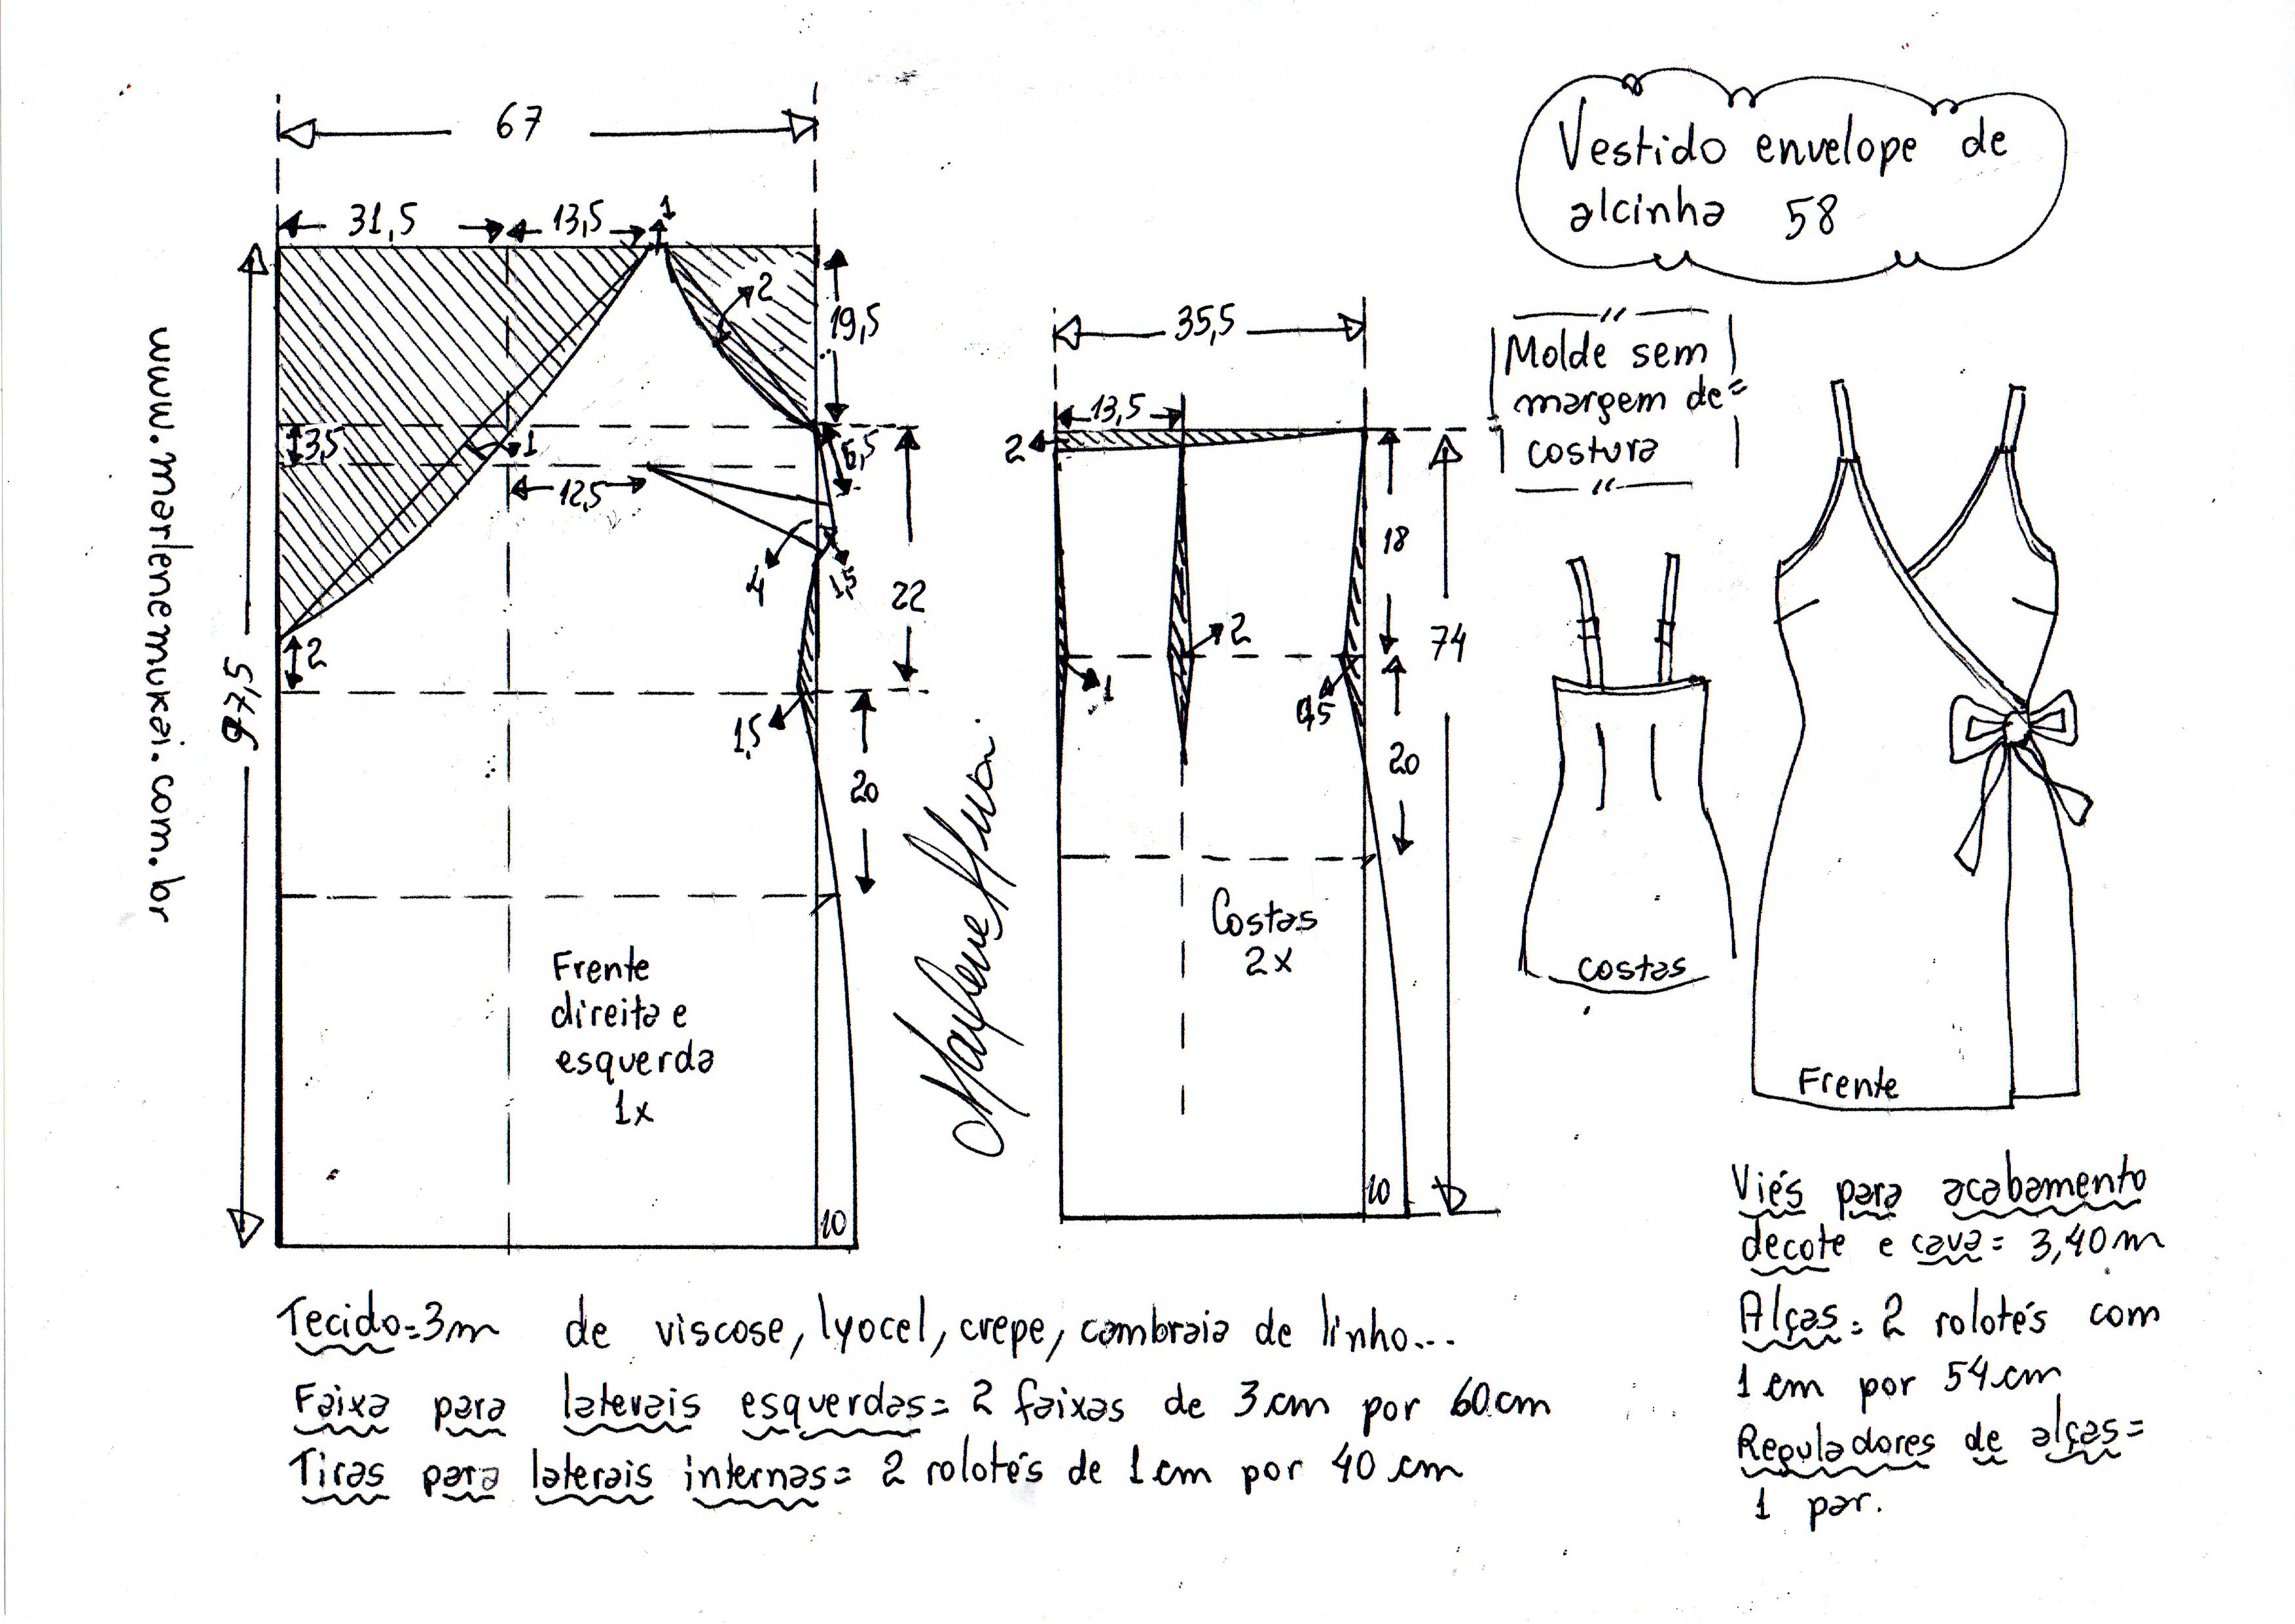 67
31,5
13,5
1
2
19,5
3,5
1
6,5
12,5
4
1,5
22
2
97,5
1,5
20
Frente
direita e
esquerda
1x
10
www.marlenemukai.com.br
35,5
13,5
2
18
74
2
1
20
Costas
2x
10
Vestido envelope de
alcinha 58
Molde sem
margem de
costura
costas
Frente
Tecido=3m de viscose, lyocel, crepe, cambraia de linho...
Faixa para laterais esquerdas= 2 faixas de 3cm por 60cm
Tiras para laterais internas= 2 rolotés de 1cm por 40 cm
Viés para acabamento
decote e cava= 3,40m
Alças= 2 rolotés com
1cm por 54cm
Reguladores de alças=
1 par.